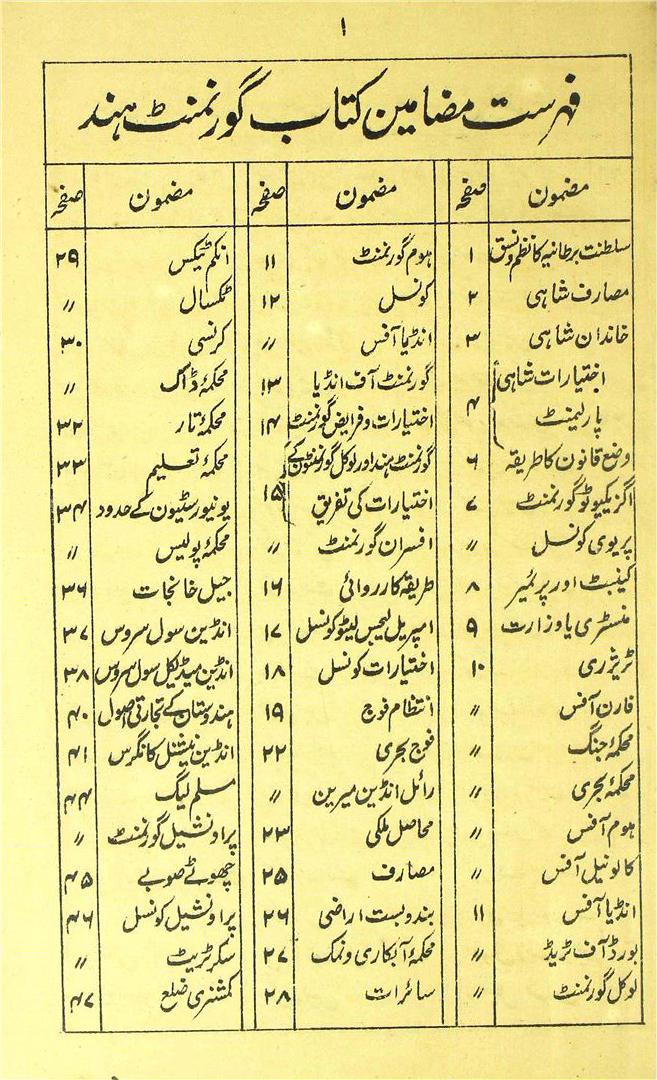 ۱
فہرست مضامین کتاب گورنمنٹ ہند
مضمون صفحہ مضمون صفحہ مضمون صفحہ
سلطنت برطانیہ کا نظم و نسق ۱ ہوم گورنمنٹ ۱۱ انکم ٹیکس ۲۹
مصارف شاہی ۲ کونسل ۱۲ ٹکسال //
خاندان شاہی ۳ انڈیا آفس // کرنسی ۳۰
اختیارات شاہی گورنمنٹ آف انڈیا ۱۳ محکمۂ ڈاک //
پارلیمنٹ ۴ اختیارات و فرایض گورنمنٹ ۱۴ محکمۂ تار ۳۲
وضع قانون کا طریقہ ۶ گورنمنٹ ہند اور لوکل گورنمنٹون کے محکمۂ تعلیم ۳۳
اگزیکیوٹو گورنمنٹ ۷ اختیارات کی تفریق ۱۵ یونیورسٹیون کے حدود ۳۴
پریوی کونسل // افسران گورنمنٹ // محکمۂ پولیس //
کینبٹ اور پرئمیر ۸ طریقہ کارروائی ۱۶ جیل خانجات ۳۶
منسٹری یا وزارت ۹ امپریل لیجس لیٹو کونسل ۱۷ انڈین سول سروس ۳۷
ٹریژری ۱۰ اختیارات کونسل ۱۸ انڈین میڈیکل سول سروس ۳۸
فارن آفس // انتظام فوج ۱۹ ہندوستان کے تجارتی اصول ۴۰
محکمۂ جنگ // فوج بحری ۲۲ انڈین نیشنل کانگرس ۴۱
محکمۂ بحری // رائل انڈین میرین // مسلم لیگ ۴۴
ہوم آفس // محاصل ملکی ۲۳ پراونشیل گورنمنٹ //
کالونیل آفس // مصارف ۲۵ چھوٹے صوبے ۴۵
انڈیا آفس ۱۱ بندوبست اراضی ۲۶ پراونشیل کونسل ۴۶
بورڈ آف ٹریڈ // محکمۂ آبکاری و نمک ۲۷ سکرٹریٹ //
لوکل گورنمنٹ // سائرات ۲۸ کمشنری ضلع ۴۷